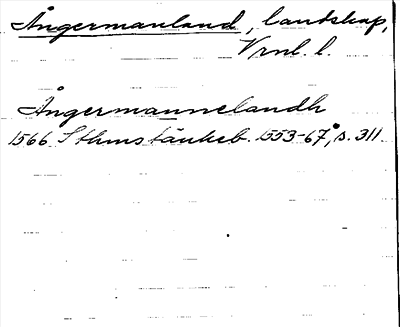 Ångermanland, landskap,
Vrnl. l.
Ångermannelandh
1566 Sthmstänkeb. 1553-67, s. 311